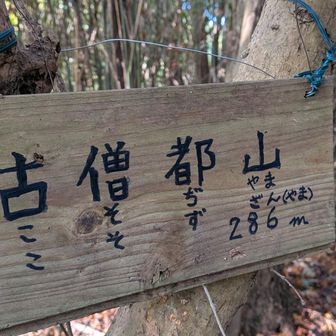 古僧都山
ここ そそ ぢず やまざん(やま)
286m